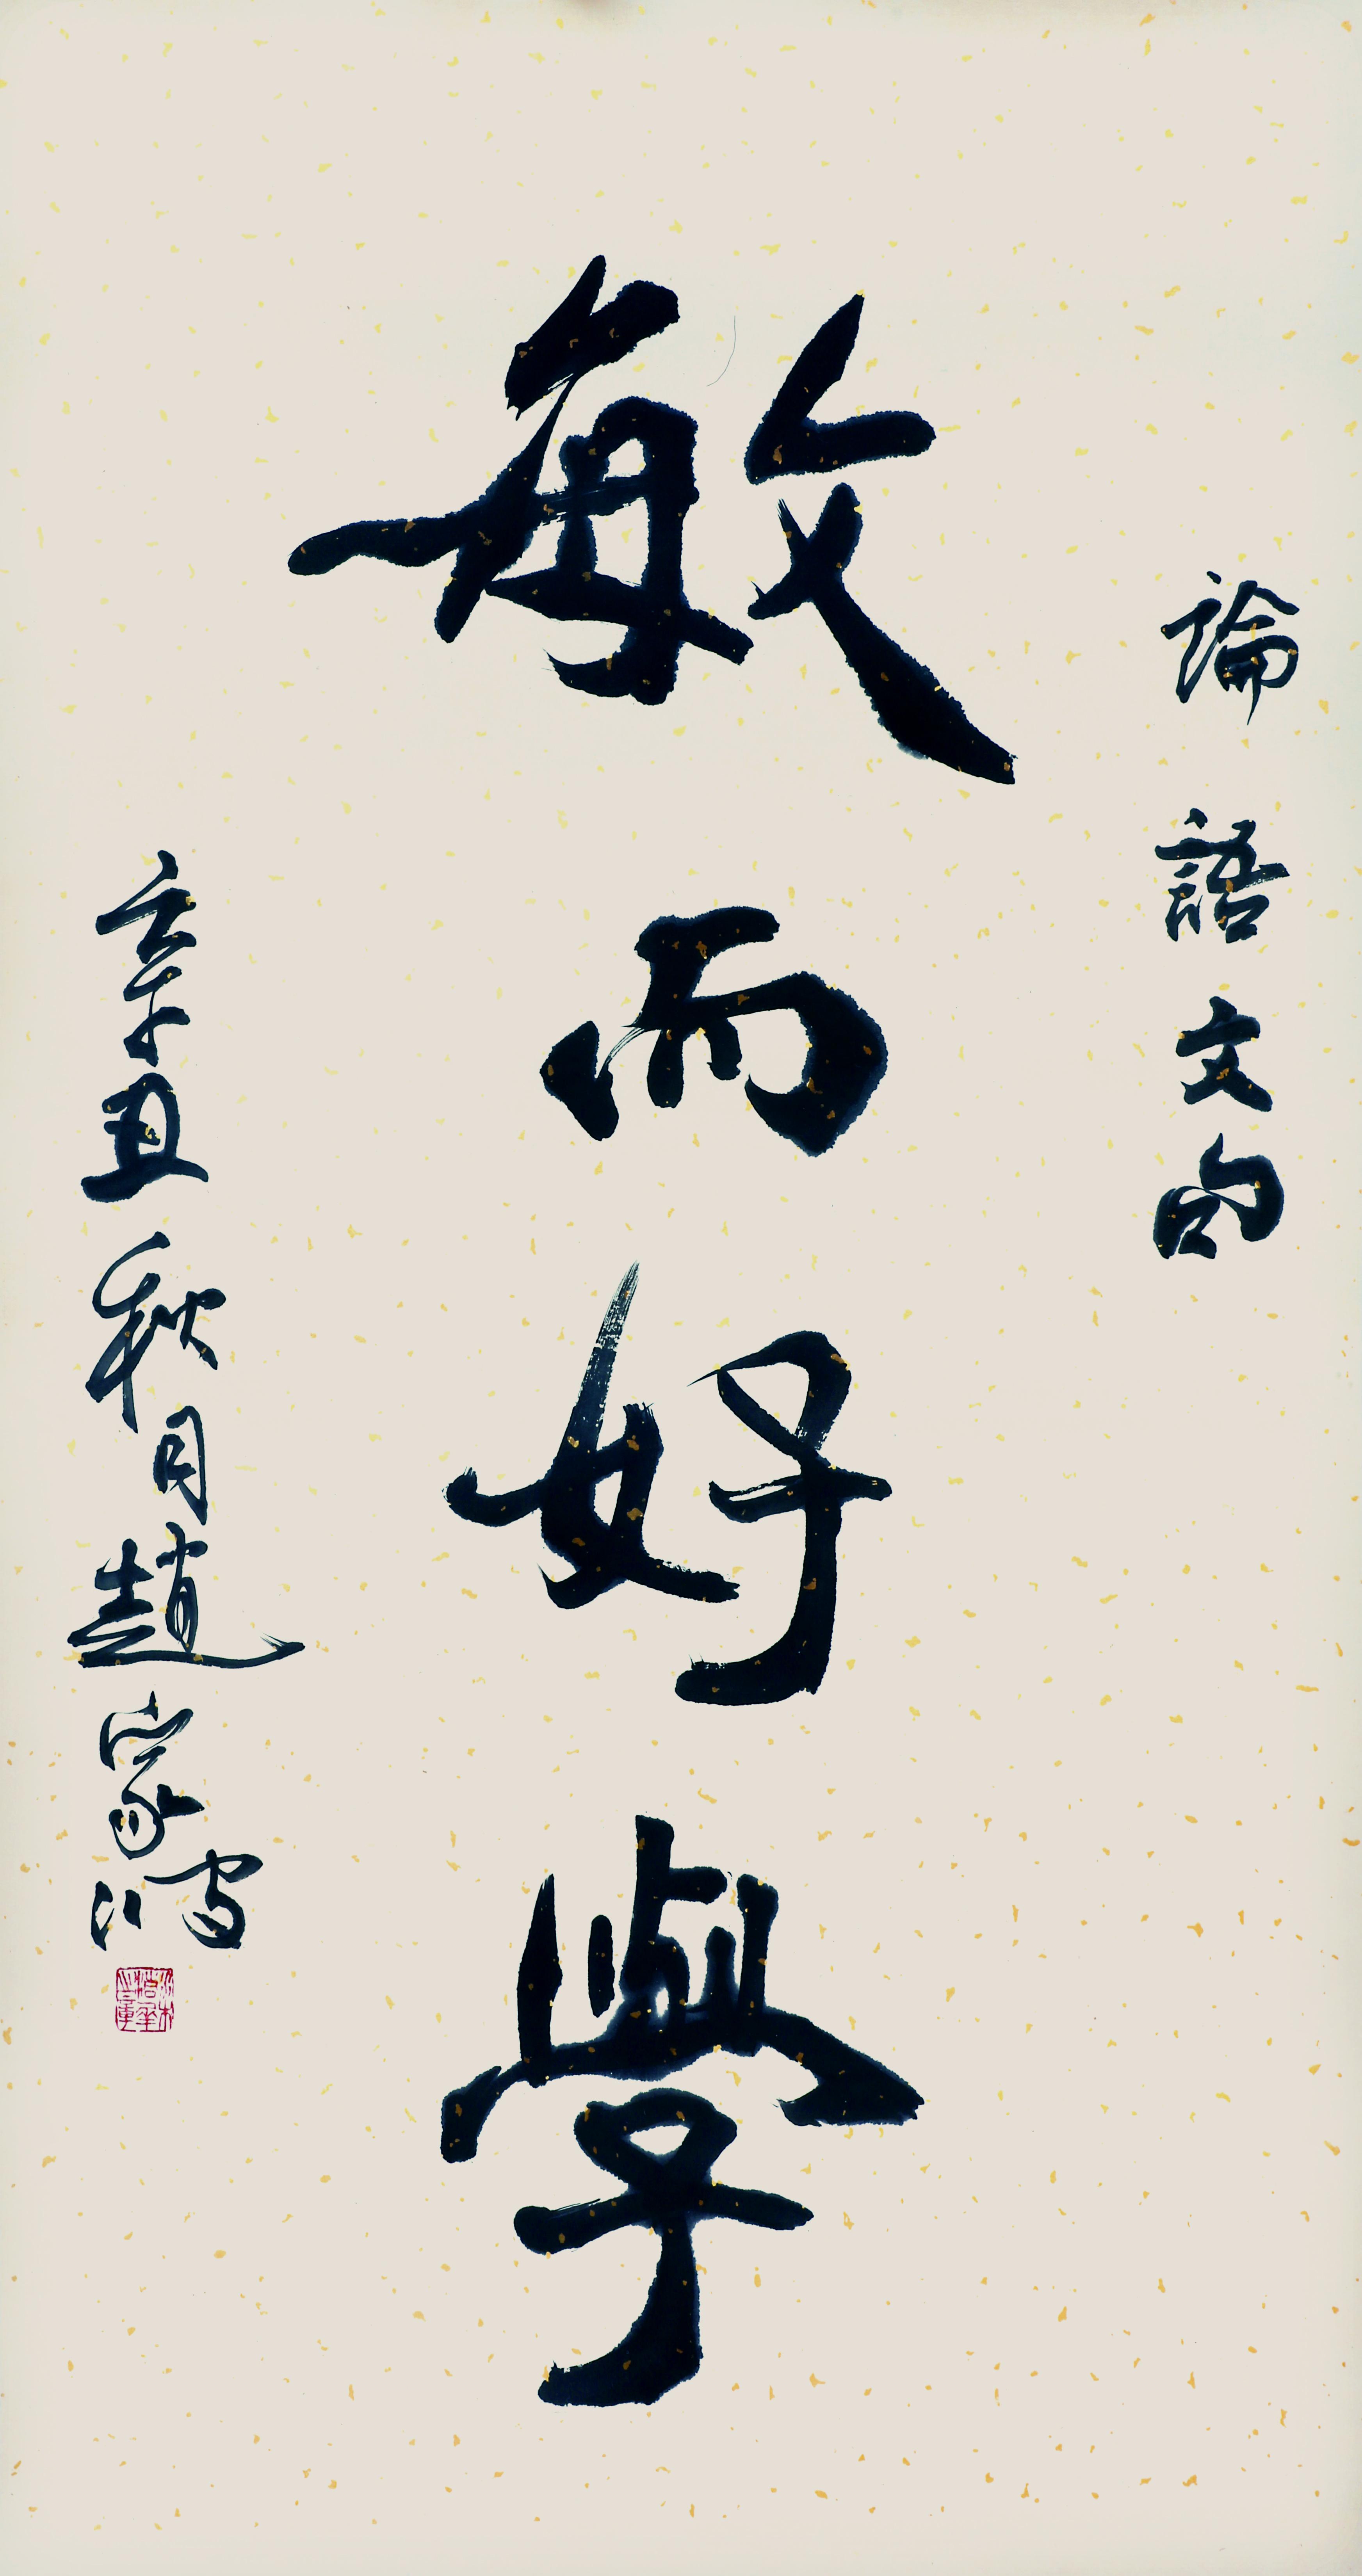 論語文句
敏而好學
辛丑秋月趙家鴻